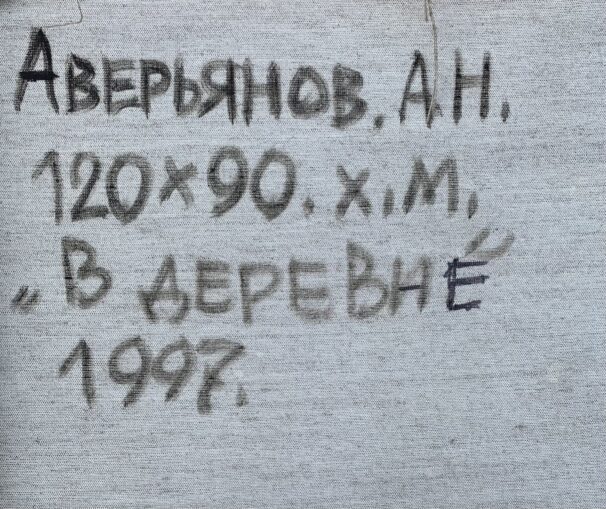 Аверьянов. А Н.
120×90. х.м.
„В деревне"
1997.